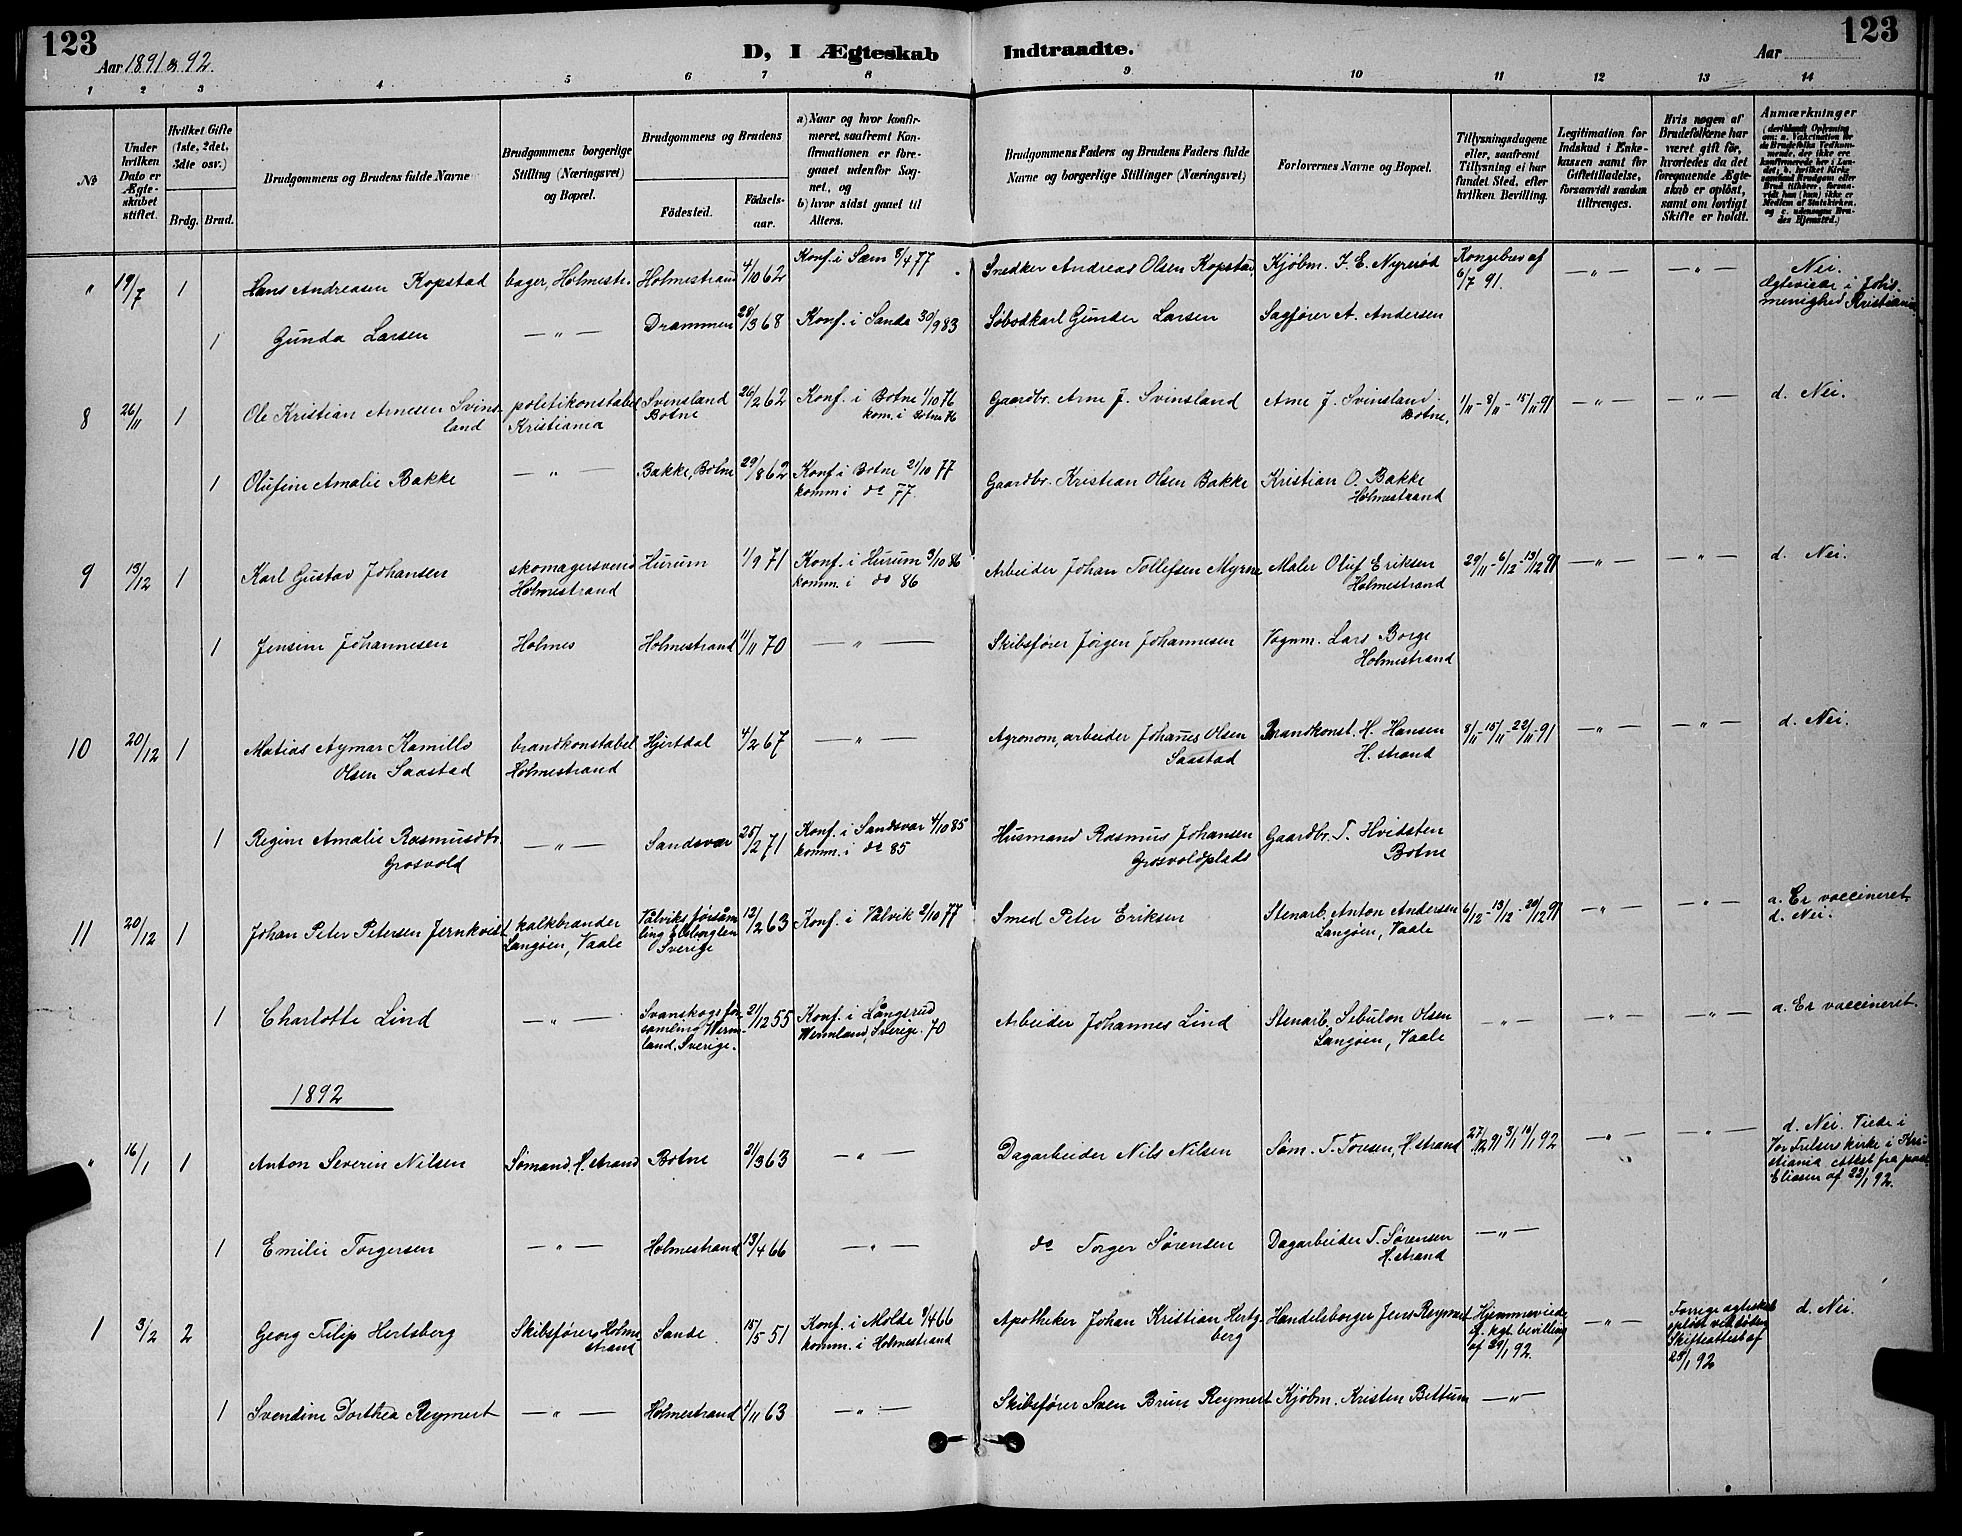 123
Aar 1891 & 92.
D, I Ægteskab Indtraadte.
Aar
123
1 2 3 4 5 6 7 8 9 10 11 12 13 14
No
Under hvilken Dato er Ægteskabet stiftet.
Hvilket Gifte (1ste, 2det, 3die osv.)
Brdg. Brud.
Brudgommens og Brudens fulde Navne
Brudgommens borgerlige Stilling (Næringsvei) og Bopæl.
Brudgommens og Brudens
Fødested.
Fødsels-aar.
a) Naar og hvor konfirmeret, saafremt Konfirmationen er foregaaet udenfor Sognet, og
b) hvor sidst gaaet til Alters.
Brudgommens Faders og Brudens Faders fulde Navne og borgerlige Stillinger (Næringsvei)
Forlovernes Navne og Bopæl.
Tillysningsdagene eller, saafremt Tillysning ei har fundet Sted, efter hvilken Bevilling.
Legitimation for Indskud i Enkekassen samt for Giftetilladelse, forsaavidt saadan tiltrænges.
Hvis nogen af Brudefolkene har været gift før, hvorledes da det foregaaende Ægteskab er opløst, samt om lovligt Skifte er holdt.
Anmærkninger
(deriblandt Oplysning om: a. Vakcination for de Brudefolks Vedkommende, der ikke ere konfirmerede her i Landet; b. hvilket Kirkesamfund Brudgom eller Brud tilhører, forsaavidt han (hun) ikke er Medlem af Statskirken, og c. udensogns Brudes Hjemsted.)
" 19/7 1 Hans Andreasen Kopstad bager, Holmestr. Holmestrand 4/10 62 Konf. i Sæm 8/4 77 Snedker Andreas Olsen Kopstad Kjøbm. F. E. Nyrerød Kongebrev af 6/7 91. — " — — " — Nei. Ægteviede i Johs. menighed Kristiania
1 Gunda Larsen — " — Drammen 28/3 68 Konf. i Sande 30/9 83 Søbodkarl Gunder Larsen Sagfører A. Andersen
8 26/11 1 Ole Kristian Arnesen Svinsland politikonstabel Kristiania Svinsland Botne 26/2 62 Konf. i Botne 1/10 76 kom. i Botne 76 Gaardbr. Arne J. Svinsland Arne J. Svinsland Botne. 1/11 - 8/11 - 15/11 - 91 — " — — " — d. Nei.
1 Olufine Amalie Bakke — " — Bakke, Botne 29/8 62 Konf. i Botne 21/10 77 komm i do 77. Gaardbr. Kristian Olsen Bakke Kristian O. Bakke Holmestrand
9 13/12 1 Karl Gustav Johansen skomagersvend Holmestrand Hurum 1/9 71 Konf. i Hurum 3/10 86 komm. i do 86 Arbeider Johan Tollefsen Myrne Maler Oluf Eriksen Holmestrand 29/11 - 6/12 - 13/12 91 — " — — " — d. Nei.
1 Jensine Johannesen Holmes Holmestrand 11/11 70 — " — Skibsfører Jørgen Johannesen Vognm. Lars Borge Holmestrand
10 20/12 1 Matias Aymar Kamillo Olsen Saastad brandkonstabel Holmestrand Hjertdal 4/2 67 — " — Agronom, arbeider Johanes Olsen Saastad Brandkonst. H. Hansen H. strand 8/11 - 15/11 - 22/11 - 91 — " — — " — d. Nei.
1 Regine Amalie Rasmusdtr. Grosvold — " — Sandsvær 25/2 71 Konf. i Sandsvær 4/10 85 komm. i do 85 Husmand Rasmus Johansen Grosvoldplads Gaardbr. T. Hvitsten Botne
11 20/12 1 Johan Peter Petersen Jernkvist kalkbrænder Langøen, Vaale Sverige 12/2 63 Konf. i Vålvik 2/10 77 Smed Peter Eriksen Stenarb. Anton Andersen Langøen, Vaale 6/12 - 13/12 - 20/12 91 — " — — " — a. Er vaccineret d. Nei.
1 Charlotte Lind — " — Svanskogs församling Wermland. Sverige. 21/12 55 Konf. i Långsrud Wermland, Sverige. 70 Arbeider Johannes Lind Stenarb. Sebulon Olsen Langøen, Vaale — " — — " — — " — a. Er vaccineret.
1892
" 16/1 1 Anton Severin Nilsen Sømand. H. strand Botne 21/3 63 — " — Dagarbeider Nils Nilsen Søm. T. Toresen, H. strand 27/12 91 3/1 10/1 92 — " — — " — d. Nei. Viede i Vor Frelsers kirke i Kristiania Attest fra Eliasen af 22/1 92.
1 Emilie Torgersen — " — Holmestrand 13/4 66 — " — do Torger Sørensen Dagarbeider T. Sørensen H. strand — " —
1 3/2 2 Georg Filip Hertsberg Skibsfører, Holmestrand Sande 15/5 51 Konf. i Molde 8/4 66 komm. i Holmestrand Apotheker Johan Kristian Hertzberg Handelsborger Jens Reymert Hjemmeviede ef. kgl. bevilling af 29/1 92. — " — Forrige ægteskab opløst ved døden Skifteattest af 25/1 92 d. Nei.
1 Svendine Dorthea Reymert — " — Holmestrand 1/11 63 — " — Skibsfører Sven Brun Reymert Kjøbm. Kristen Bettum — " —